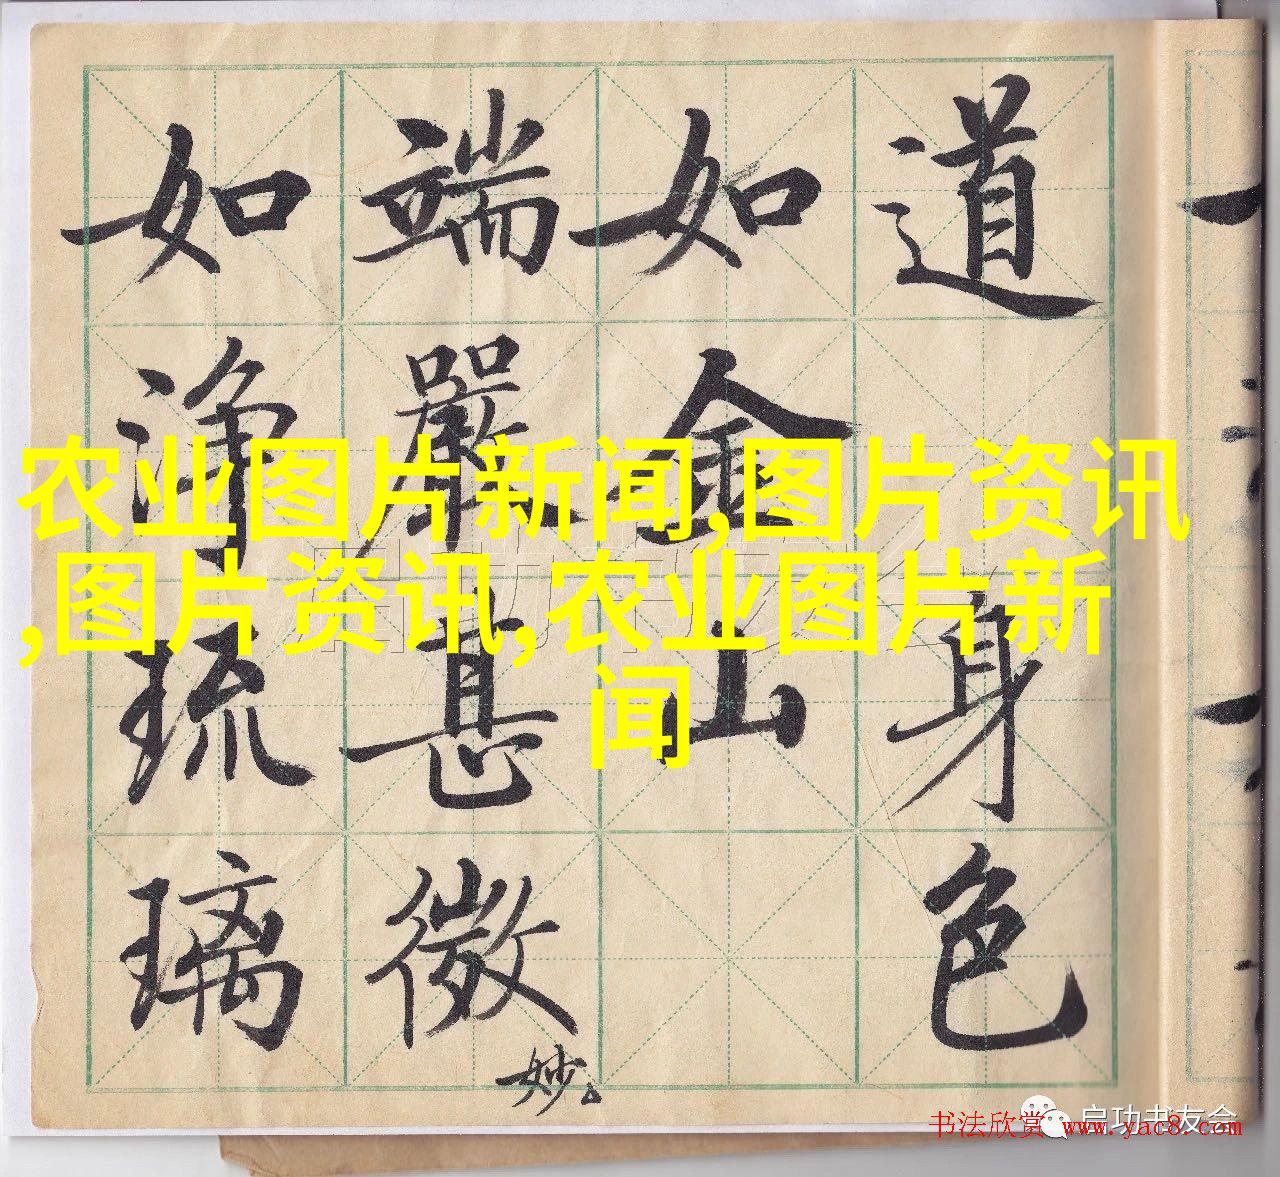 道身色
如金山
端嚴甚微妙
如淨琉璃
农业图片新闻,图片资讯
,图片资讯,农业图片新
闻
启功书友会
书法欣赏 www.yac8.com